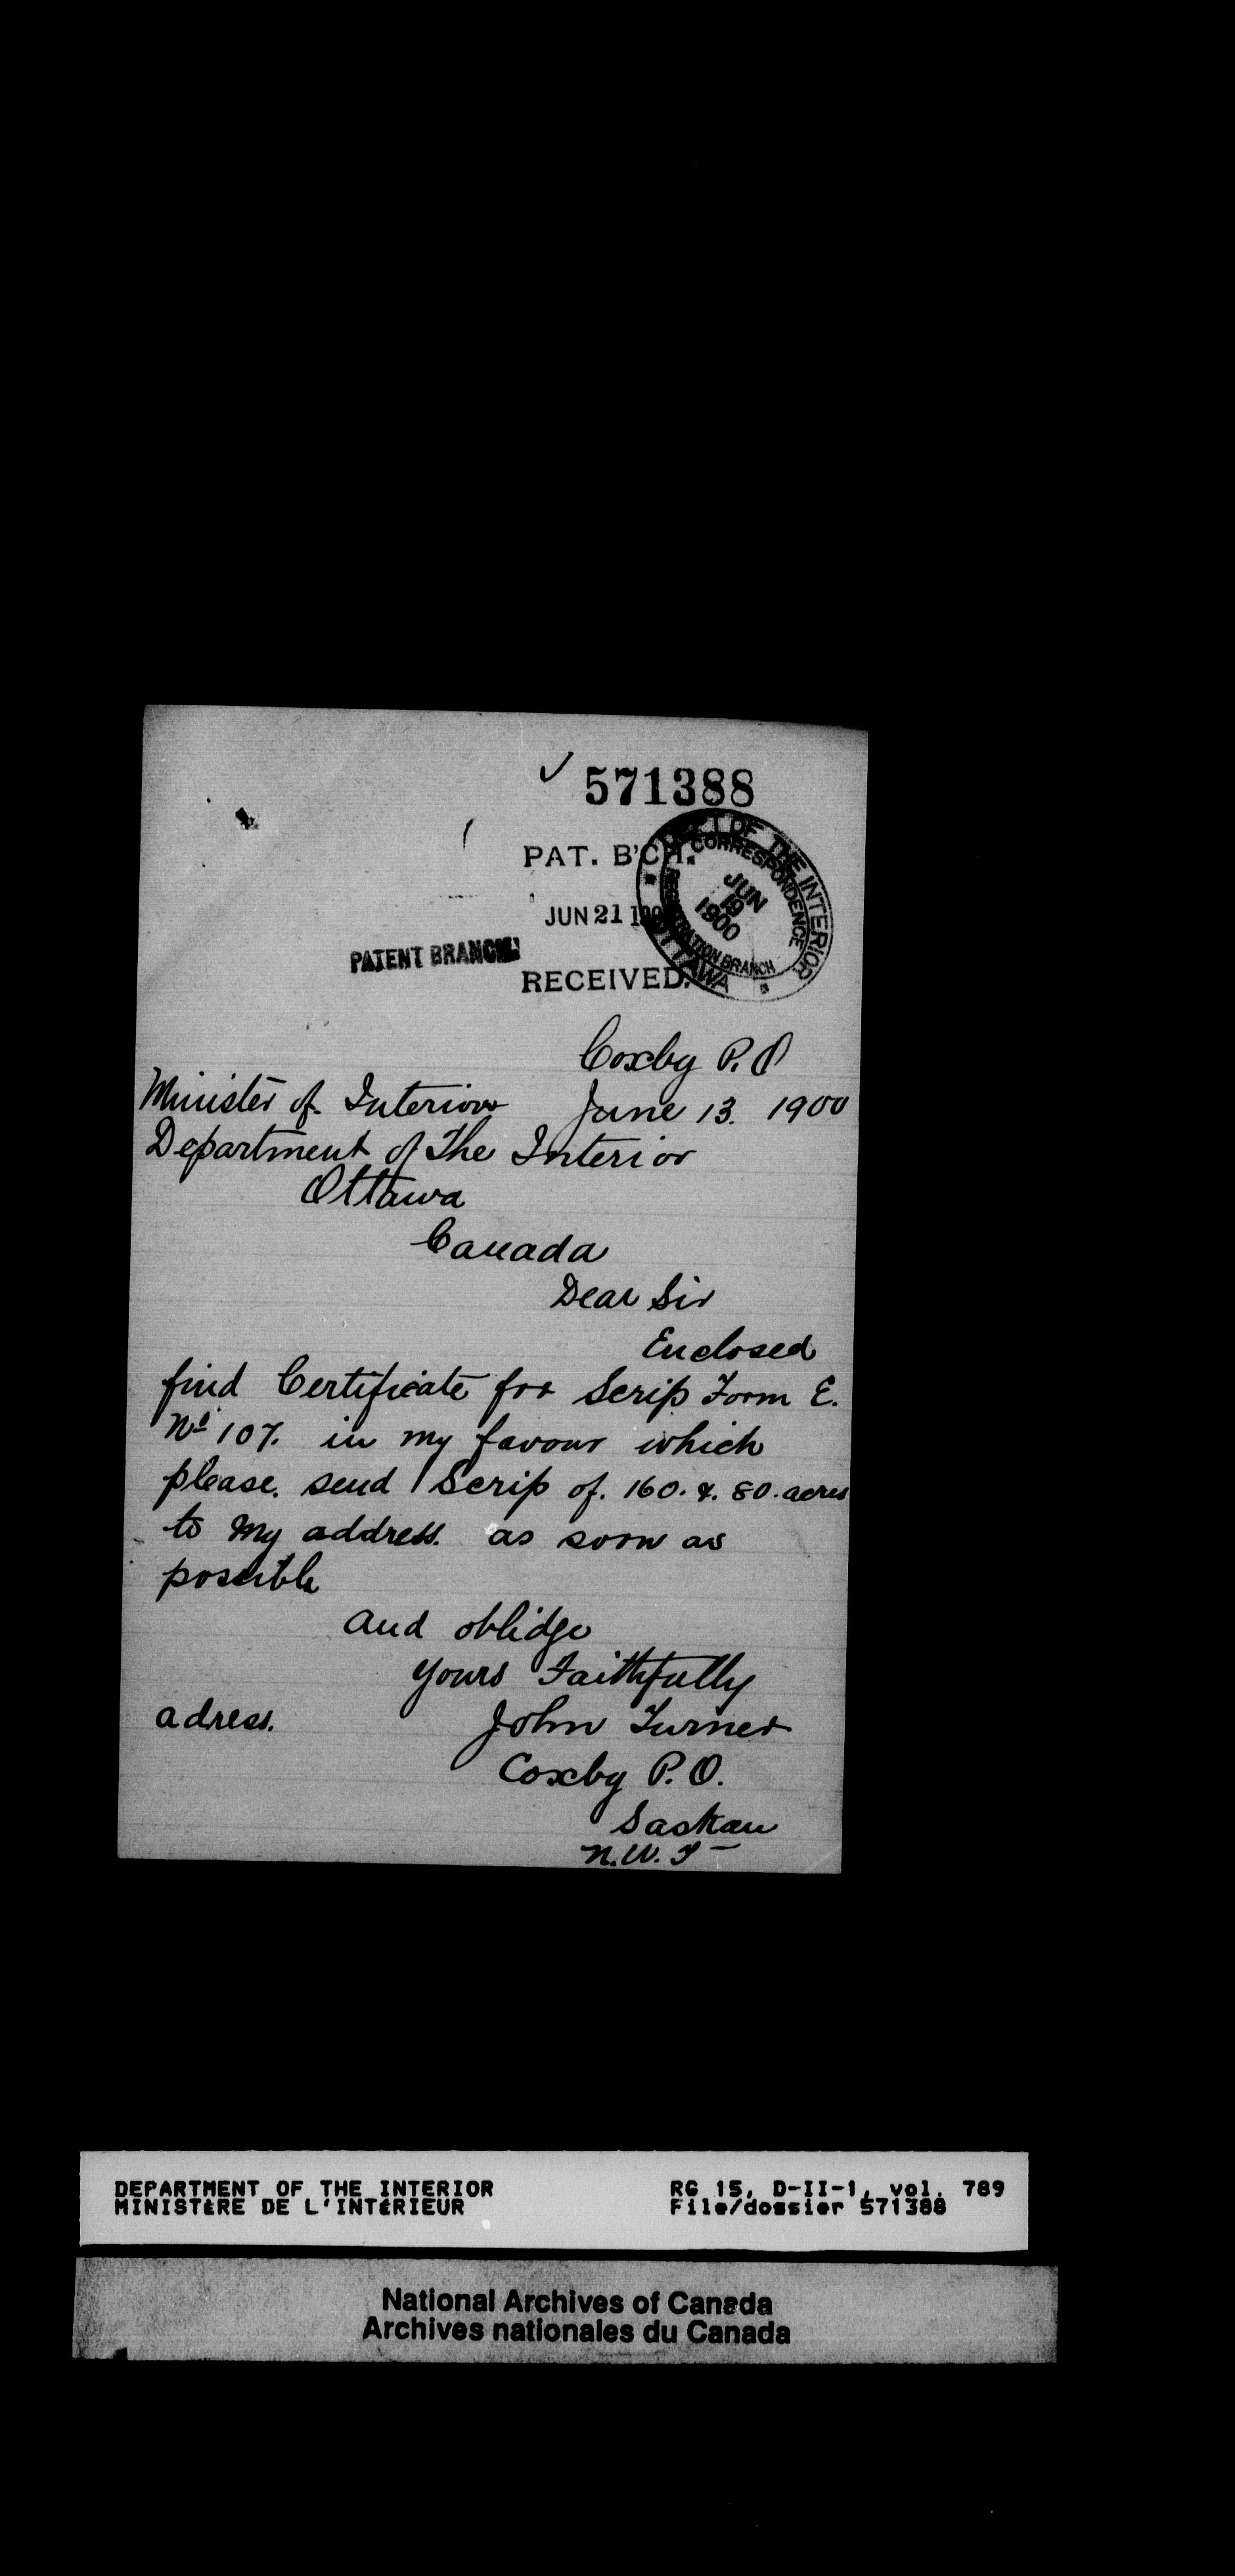 ✓ 571388
PAT. B'CH.
JUN 21 190
PATENT BRANCH
RECEIVED.
DEPT OF THE INTERIOR
CORRESPONDENCE
JUN
19
1900
REGISTRATION BRANCH
OTTAWA
Coxby P.O
Minister of Interior June 13. 1900
Department of The Interior
Ottawa
Canada
Dear Sir
Enclosed
find Certificate for Scrip Form E.
No 107. in my favour which
please. send Scrip of. 160. &. 80. acres
to my address. as soon as
possible
and oblidge
yours Faithfully
adress. John Turner
Coxby P.O.
Saskan
N.W.T
DEPARTMENT OF THE INTERIOR RG 15, D-II-1, vol. 789
MINISTÈRE DE L'INTÉRIEUR File/dossier 571388
National Archives of Canada
Archives nationales du Canada